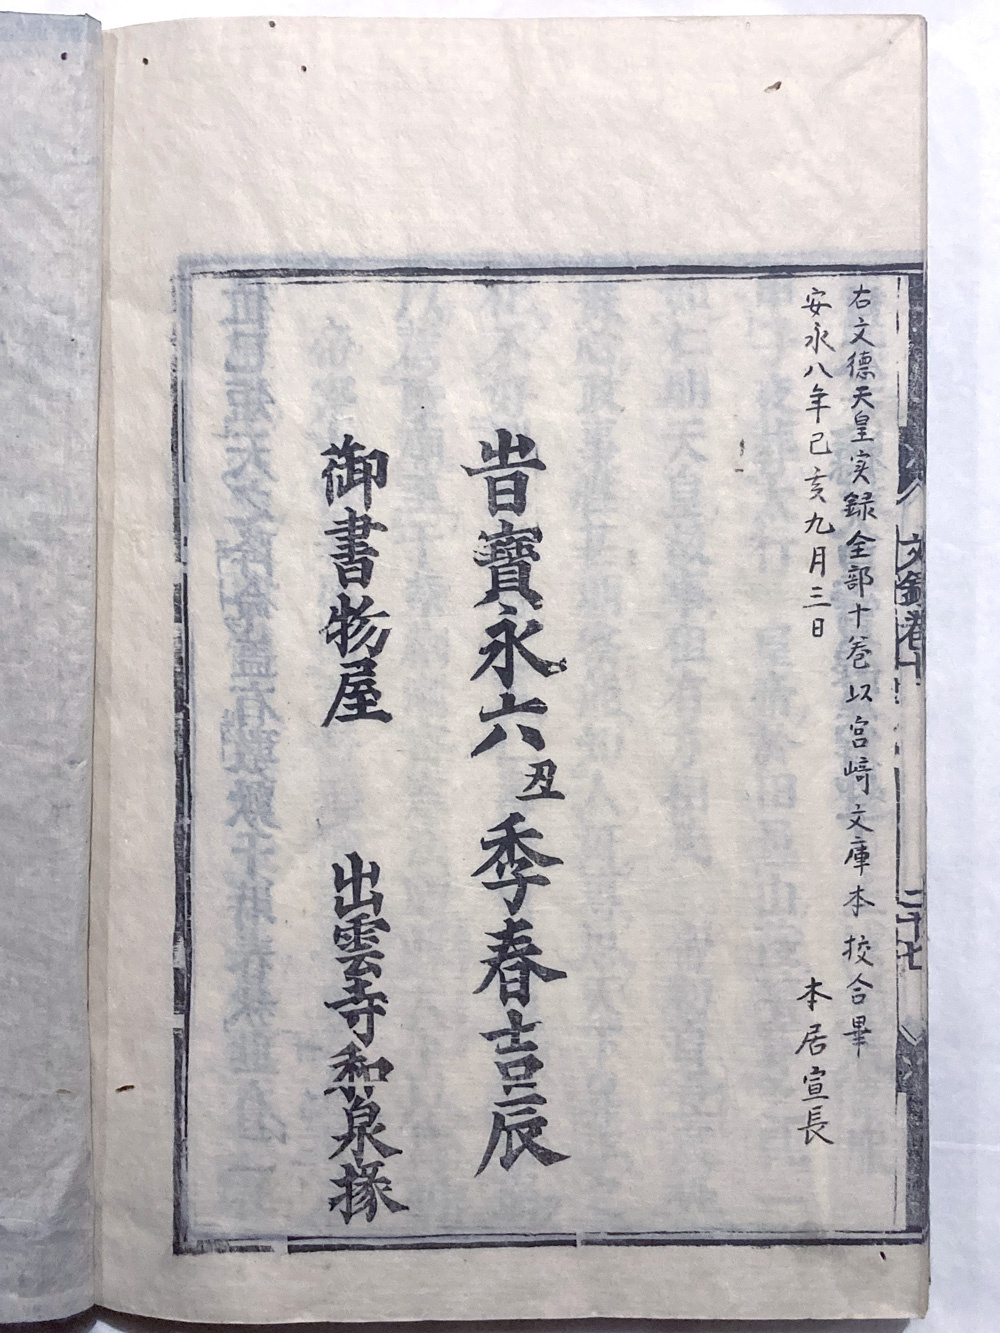 文録卷十
二十七
右文德天皇実録全部十卷以宮﨑文庫本校合畢
安永八年己亥九月三日
本居宣長
旹寶永六丑季春吉辰
御書物屋
出雲寺和泉掾